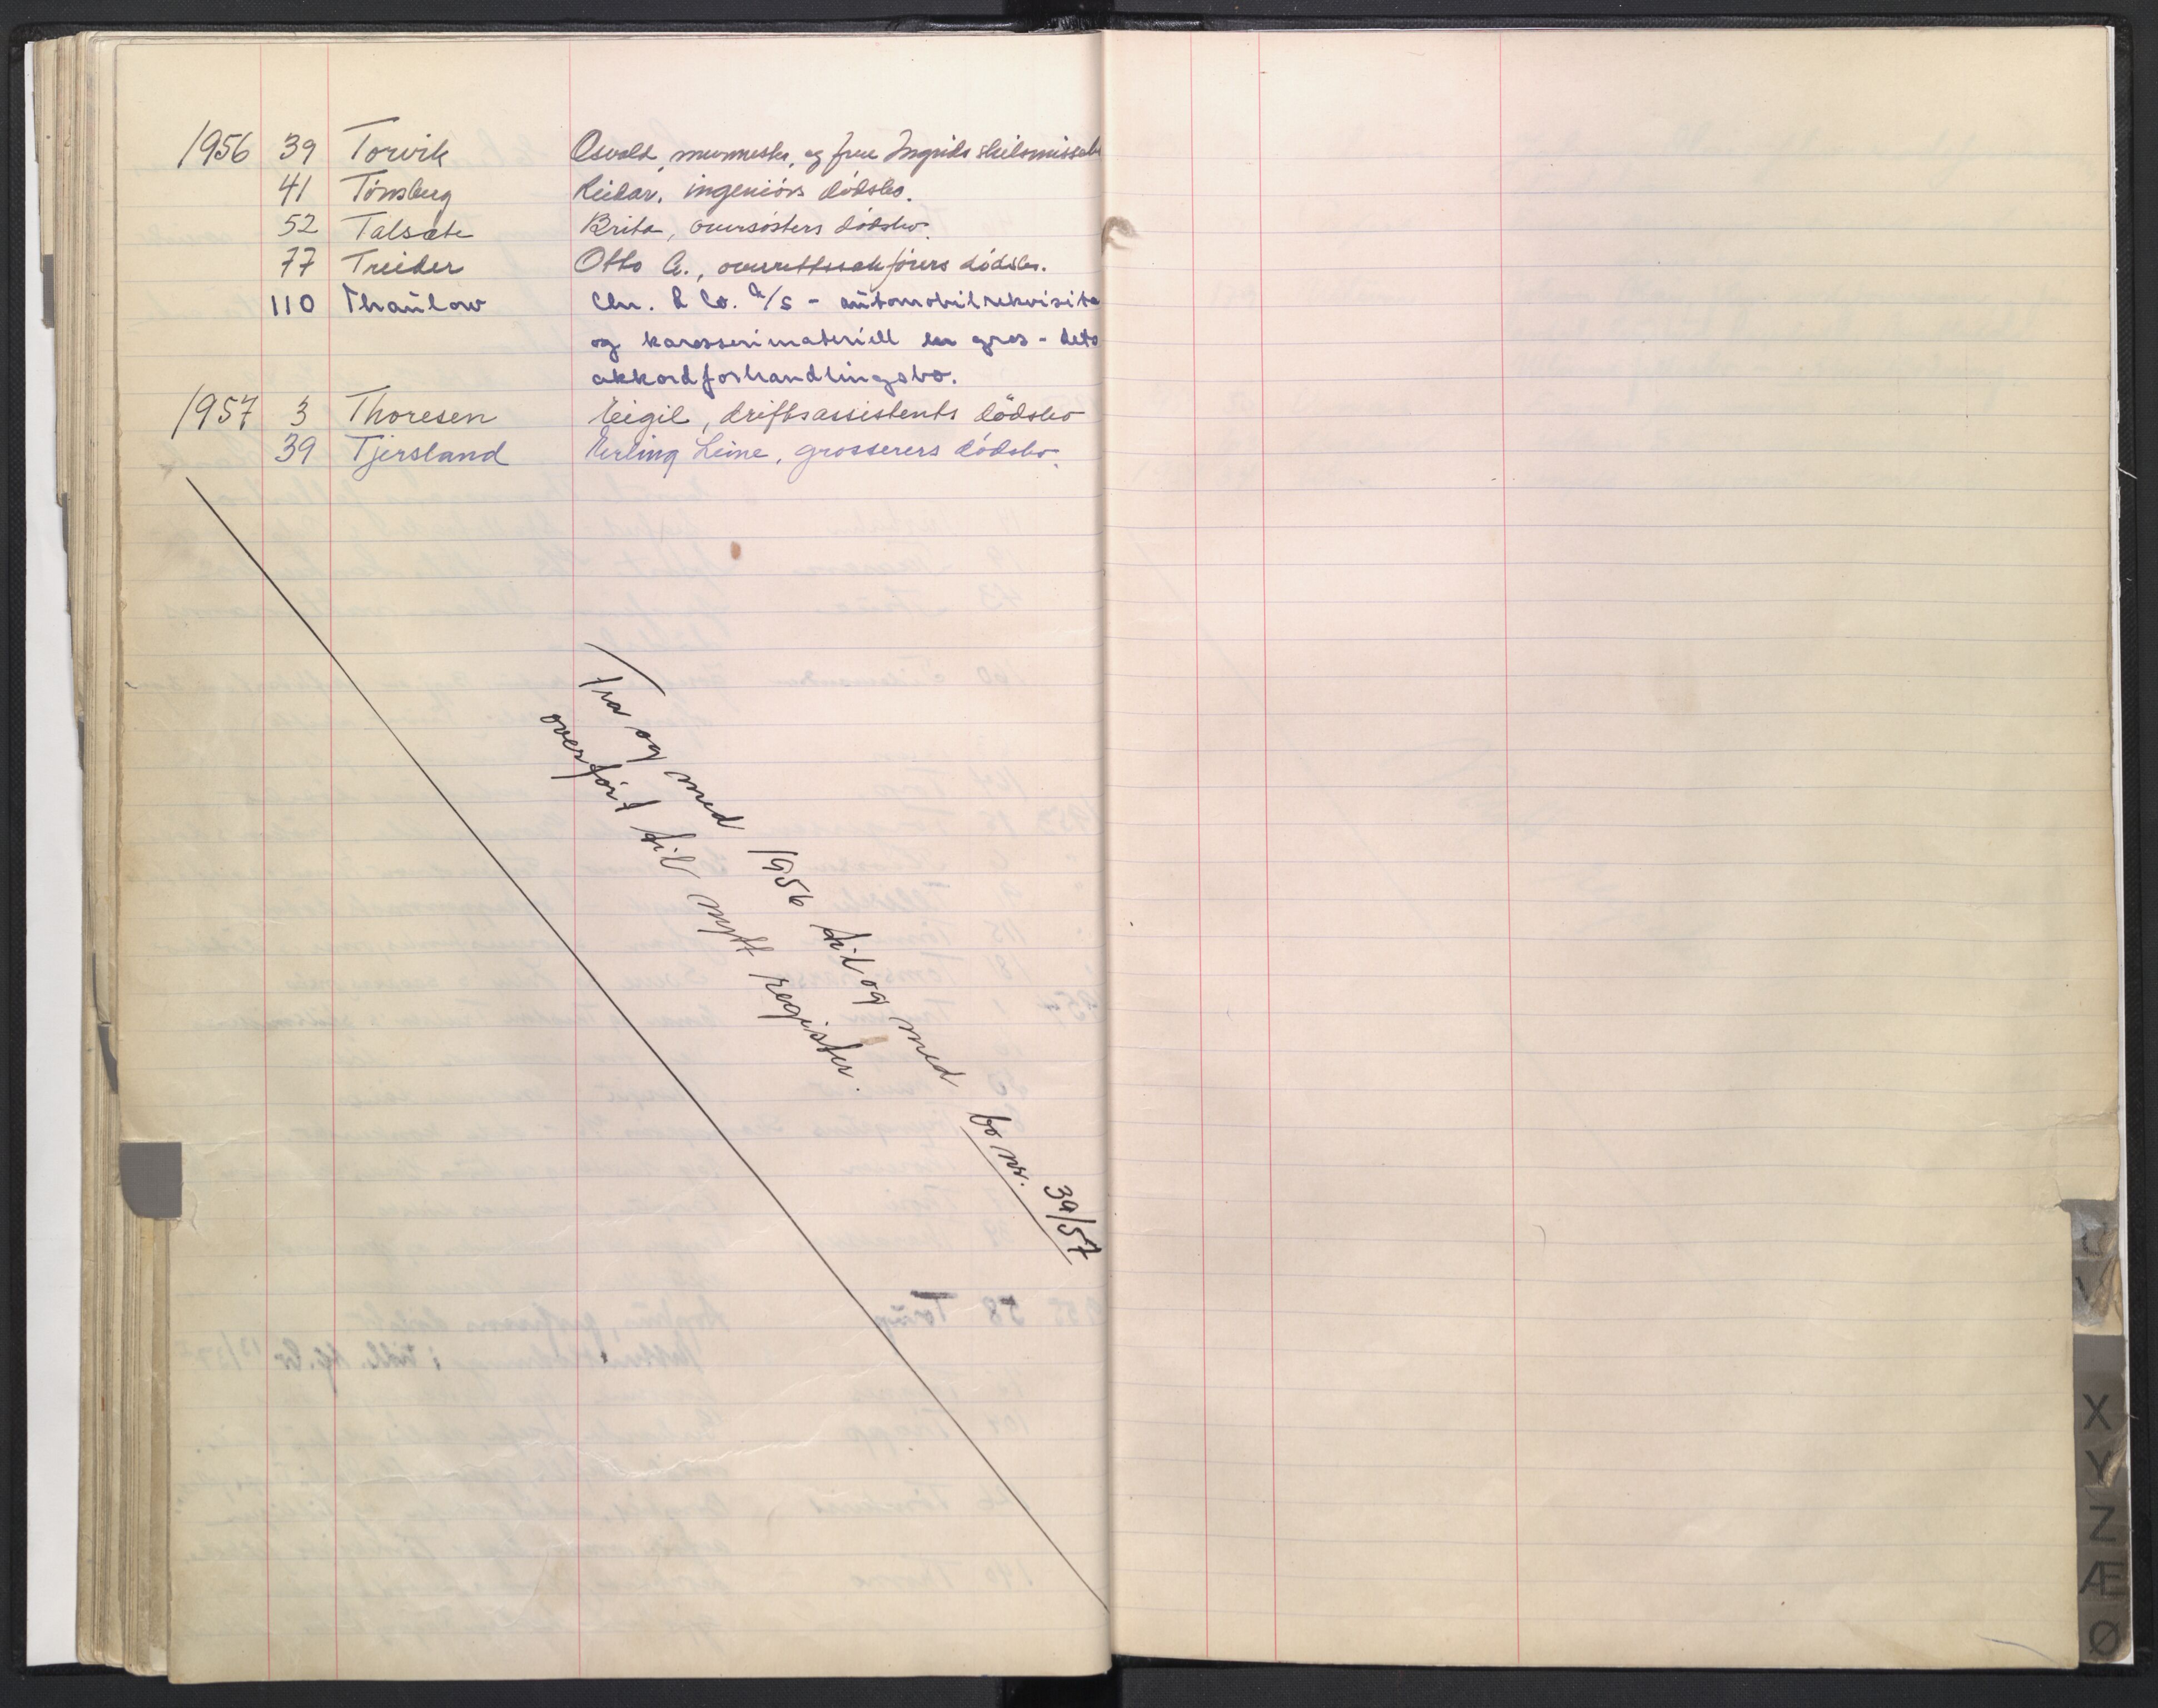 1956 39 Torvik Osvald, murmester, og frue Ingrids skilsmissebo
41 Tönsberg Reidar, ingeniörs dödsbo.
52 Talsete Brita, oversösters dödsbo.
77 Treider Otto A., overrettssakförers dödsbo.
110 Thaulow Chr. & Co. A/S - automobilrekvisita
og karosserimateriell en gros - dets
akkordforhandlingsbo.
1957 3 Thoresen Eigil, driftsassistents dödsbo
39 Tjersland Erling Leine, grosserers dödsbo.
Fra og med 1956 til og med bo nr. 39/57
overfört til nytt register.
U
V
X
Y
Z
Æ
Ø